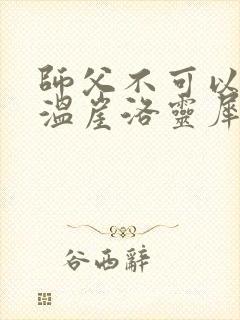 師父不可以
溫崖洛靈犀
谷西辭